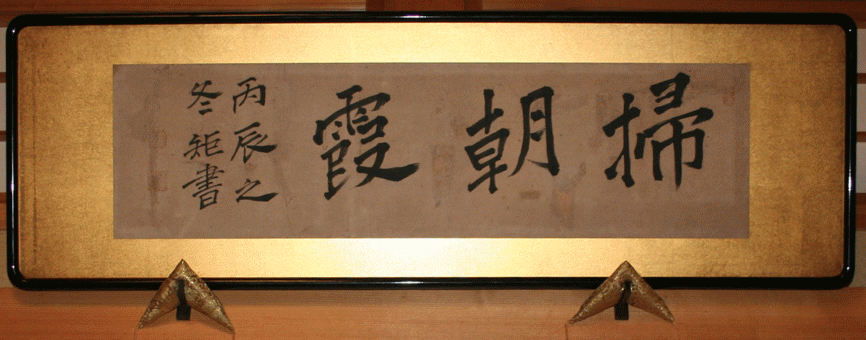 掃朝霞
丙辰之
冬矩書